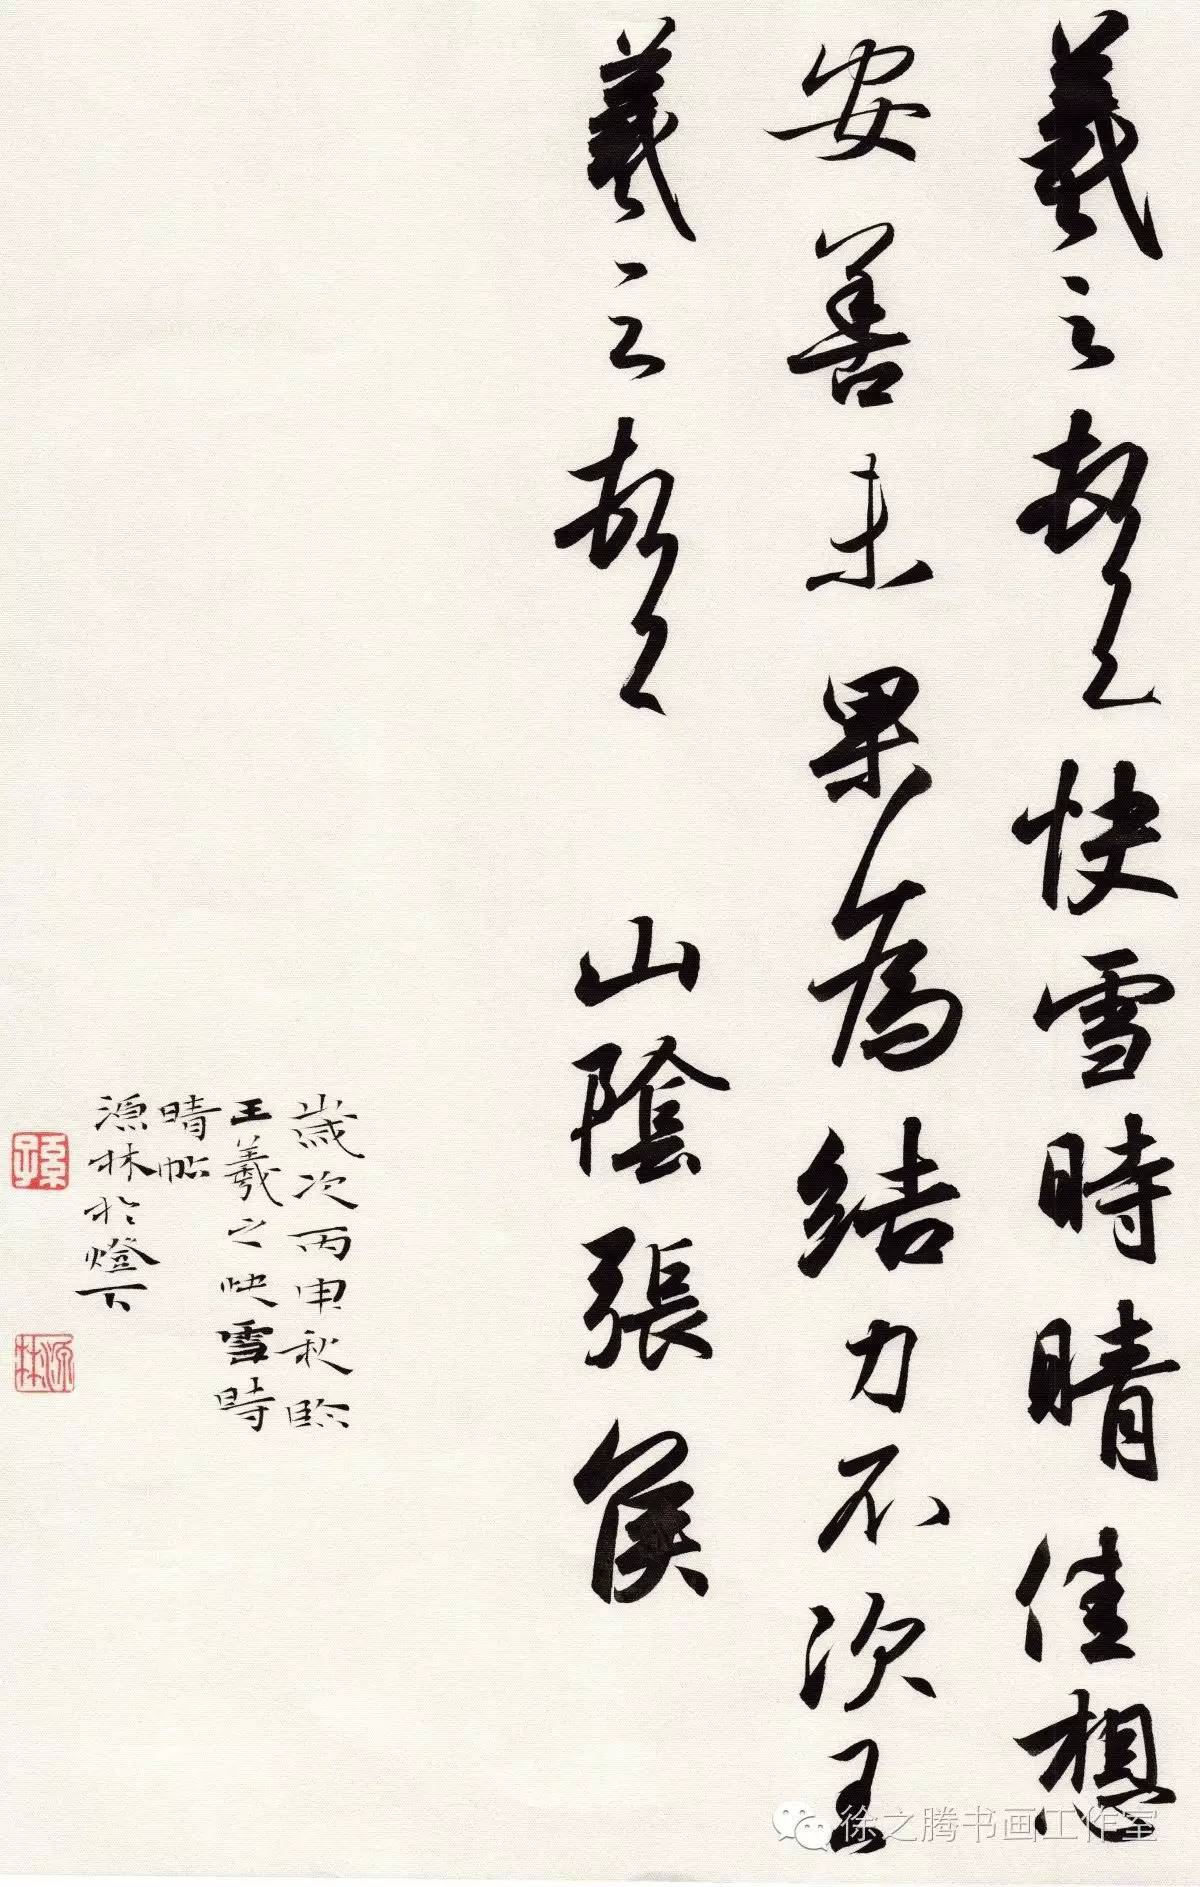 羲之頓首快雪時晴佳想
安善未果為結力不次王
羲之頓首 山陰張侯
歲次丙申秋臨
王羲之快雪時
晴帖
源林於燈下
孫
源林
徐之腾书画工作室